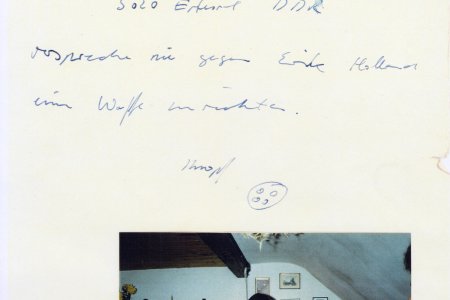 5020 Erfurt DDR
verspreche nie gegen Erik Holland
eine Waffe zu richten.
Knopf